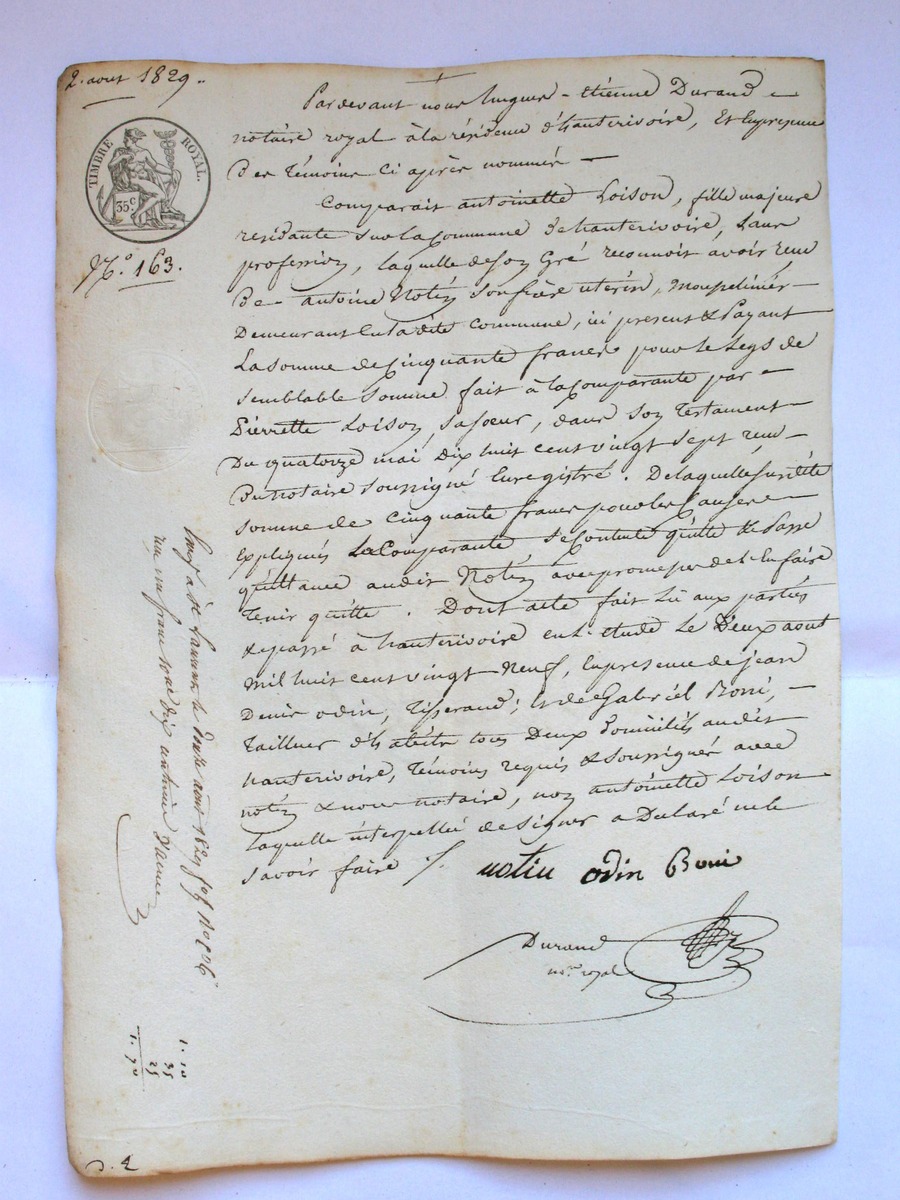 2. aout 1829.
TIMBRE ROYAL.
35 c
N.o 163.
Pardevant nous hugues-étienne Durand
notaire royal à la résidence d'hauterivoire, et En presence
Des témoins Ci après nommés
Comparait antoinette Loison, fille majeure
residante sur la Commune de hauterivoire, Sans
profession, laquelle de son Gré reconnoit avoir reçu
De antoine Notin son frère uterin,
Demeurant En la dite Commune, ici present & Payant
La somme de Cinquante francs pour le Legs de
Semblable Somme fait à la Comparante par
Pierrette Loison sa sœur, dans son Testament
Du quatorze mai Dix huit cent vingt sept reçu
Du notaire Soussigné Enregistré. De laquelle susdite
somme de Cinquante francs pour les Causes
Expliqués La Comparante Se Contente quitte & Passe
quittance audit Notin avec promesse de l'En faire
Tenir quitte. Dont acte fait Lu aux parties
& passé à hauterivoire en L'etude Le Deux aout
Mil huit Cent vingt Neuf, En presence de jean
Denis odin, Tisserand; Et de Gabriel
Tailleur d'habits tous Deux Domiciliés audit
hauterivoire, Témoins requis & Soussignés avec
notin & nous notaire, non antoinette Loison
Laquelle interpellée de signer a Declaré ne le
Savoir faire /.
notin odin
Durand
no.re royal
1. 10
35
25
1. 70